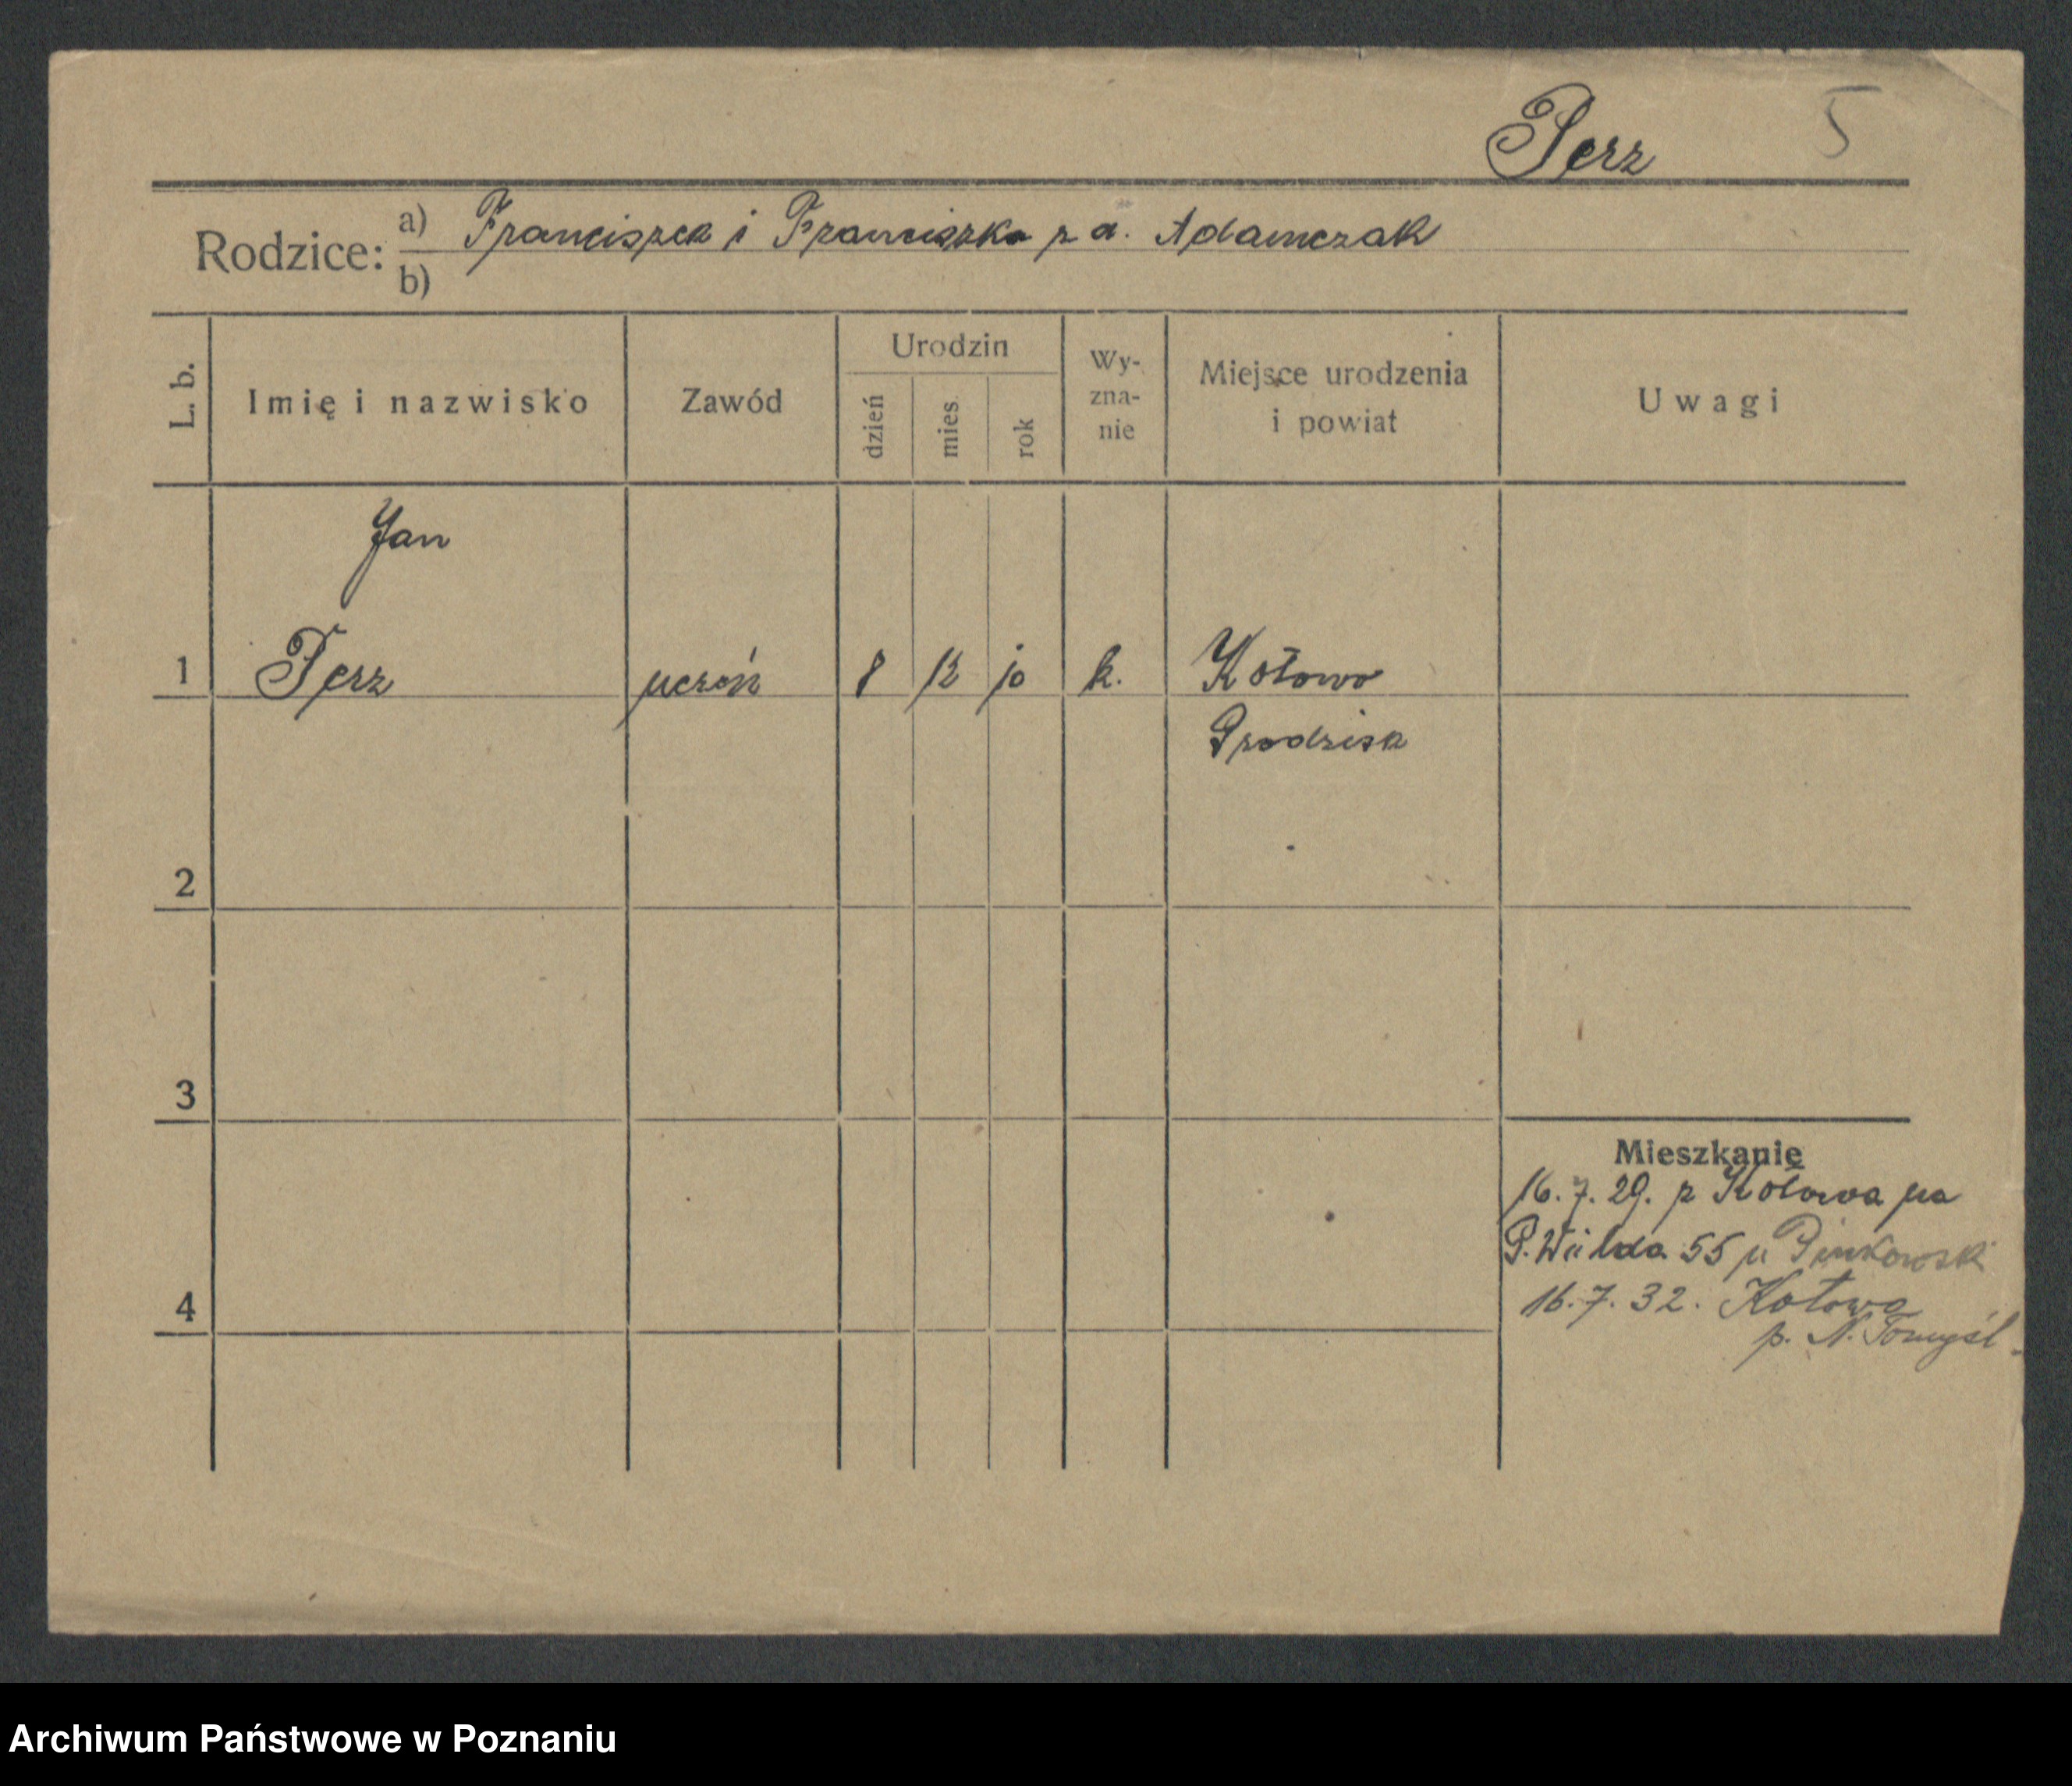 Perz 5
Rodzice: a) Franciszek i Franciszka z d. Adamczak
b)
L. b. Imię i nazwisko Zawód Urodzin dzień mies. rok Wy-zna-nie Miejsce urodzenia i powiat Uwagi
Jan
1 Perz uczeń 8 12 10 k. Kotowo
Grodzisk
2
3
Mieszkanie
16.7.29. z Kotowa na
G. Wilda 55 u Pinkowski
4 16.7.32. Kotowo
p. N. Tomyśl.
Archiwum Państwowe w Poznaniu